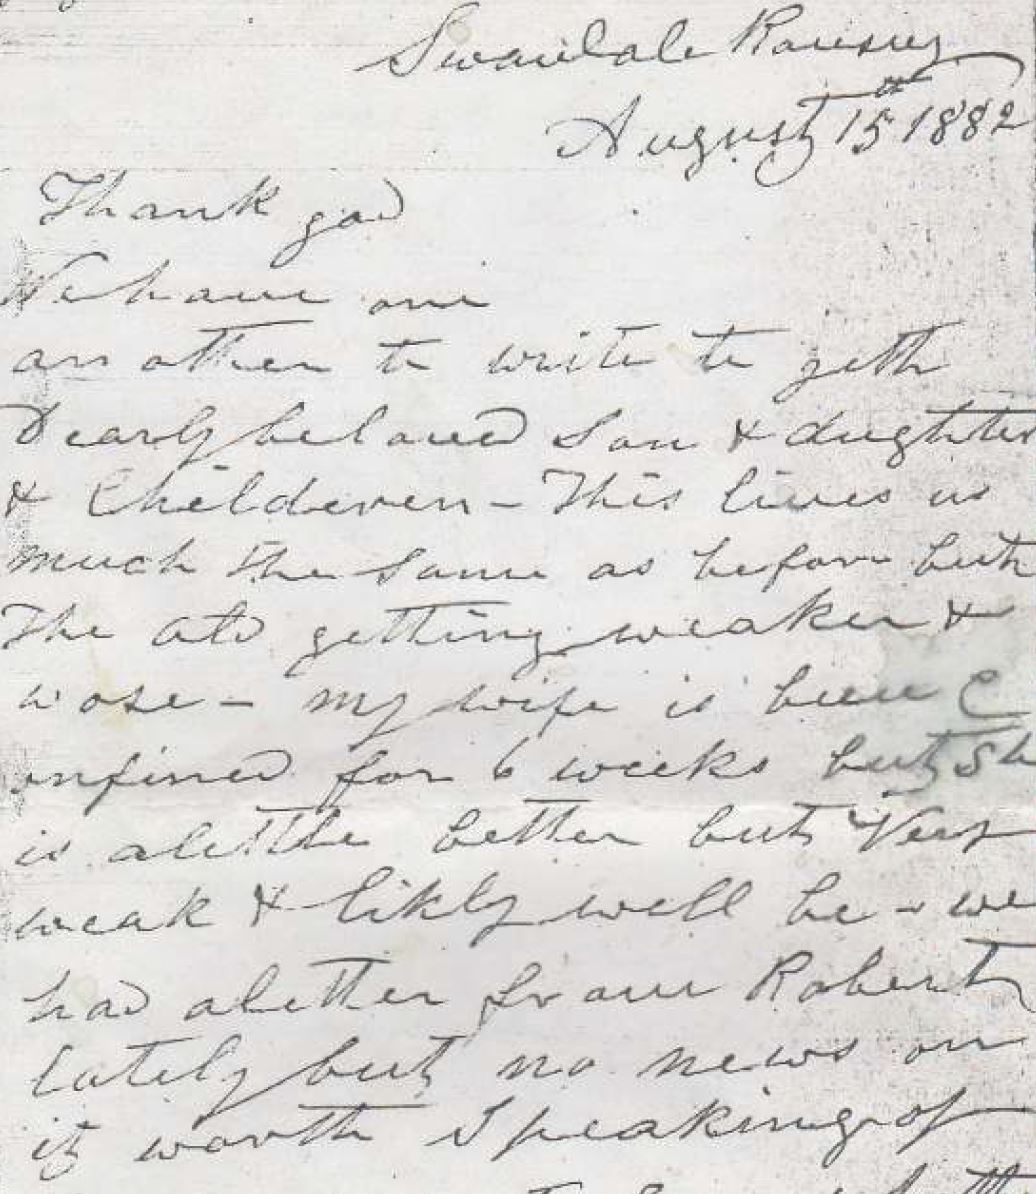 Swandale Rousey
August 15th 1882
Thank god
We have one
another to write to geth
Dearly beloved Son & dughter
& Childeren - This lives us
much the same as before but
The old getting weaker &
wose - my wife is been C
onfined for 6 weeks but Sh
is alittle better but Very
weak & likly well be - we
had aletter from Robert
lately but no news on
it worth Speaking of